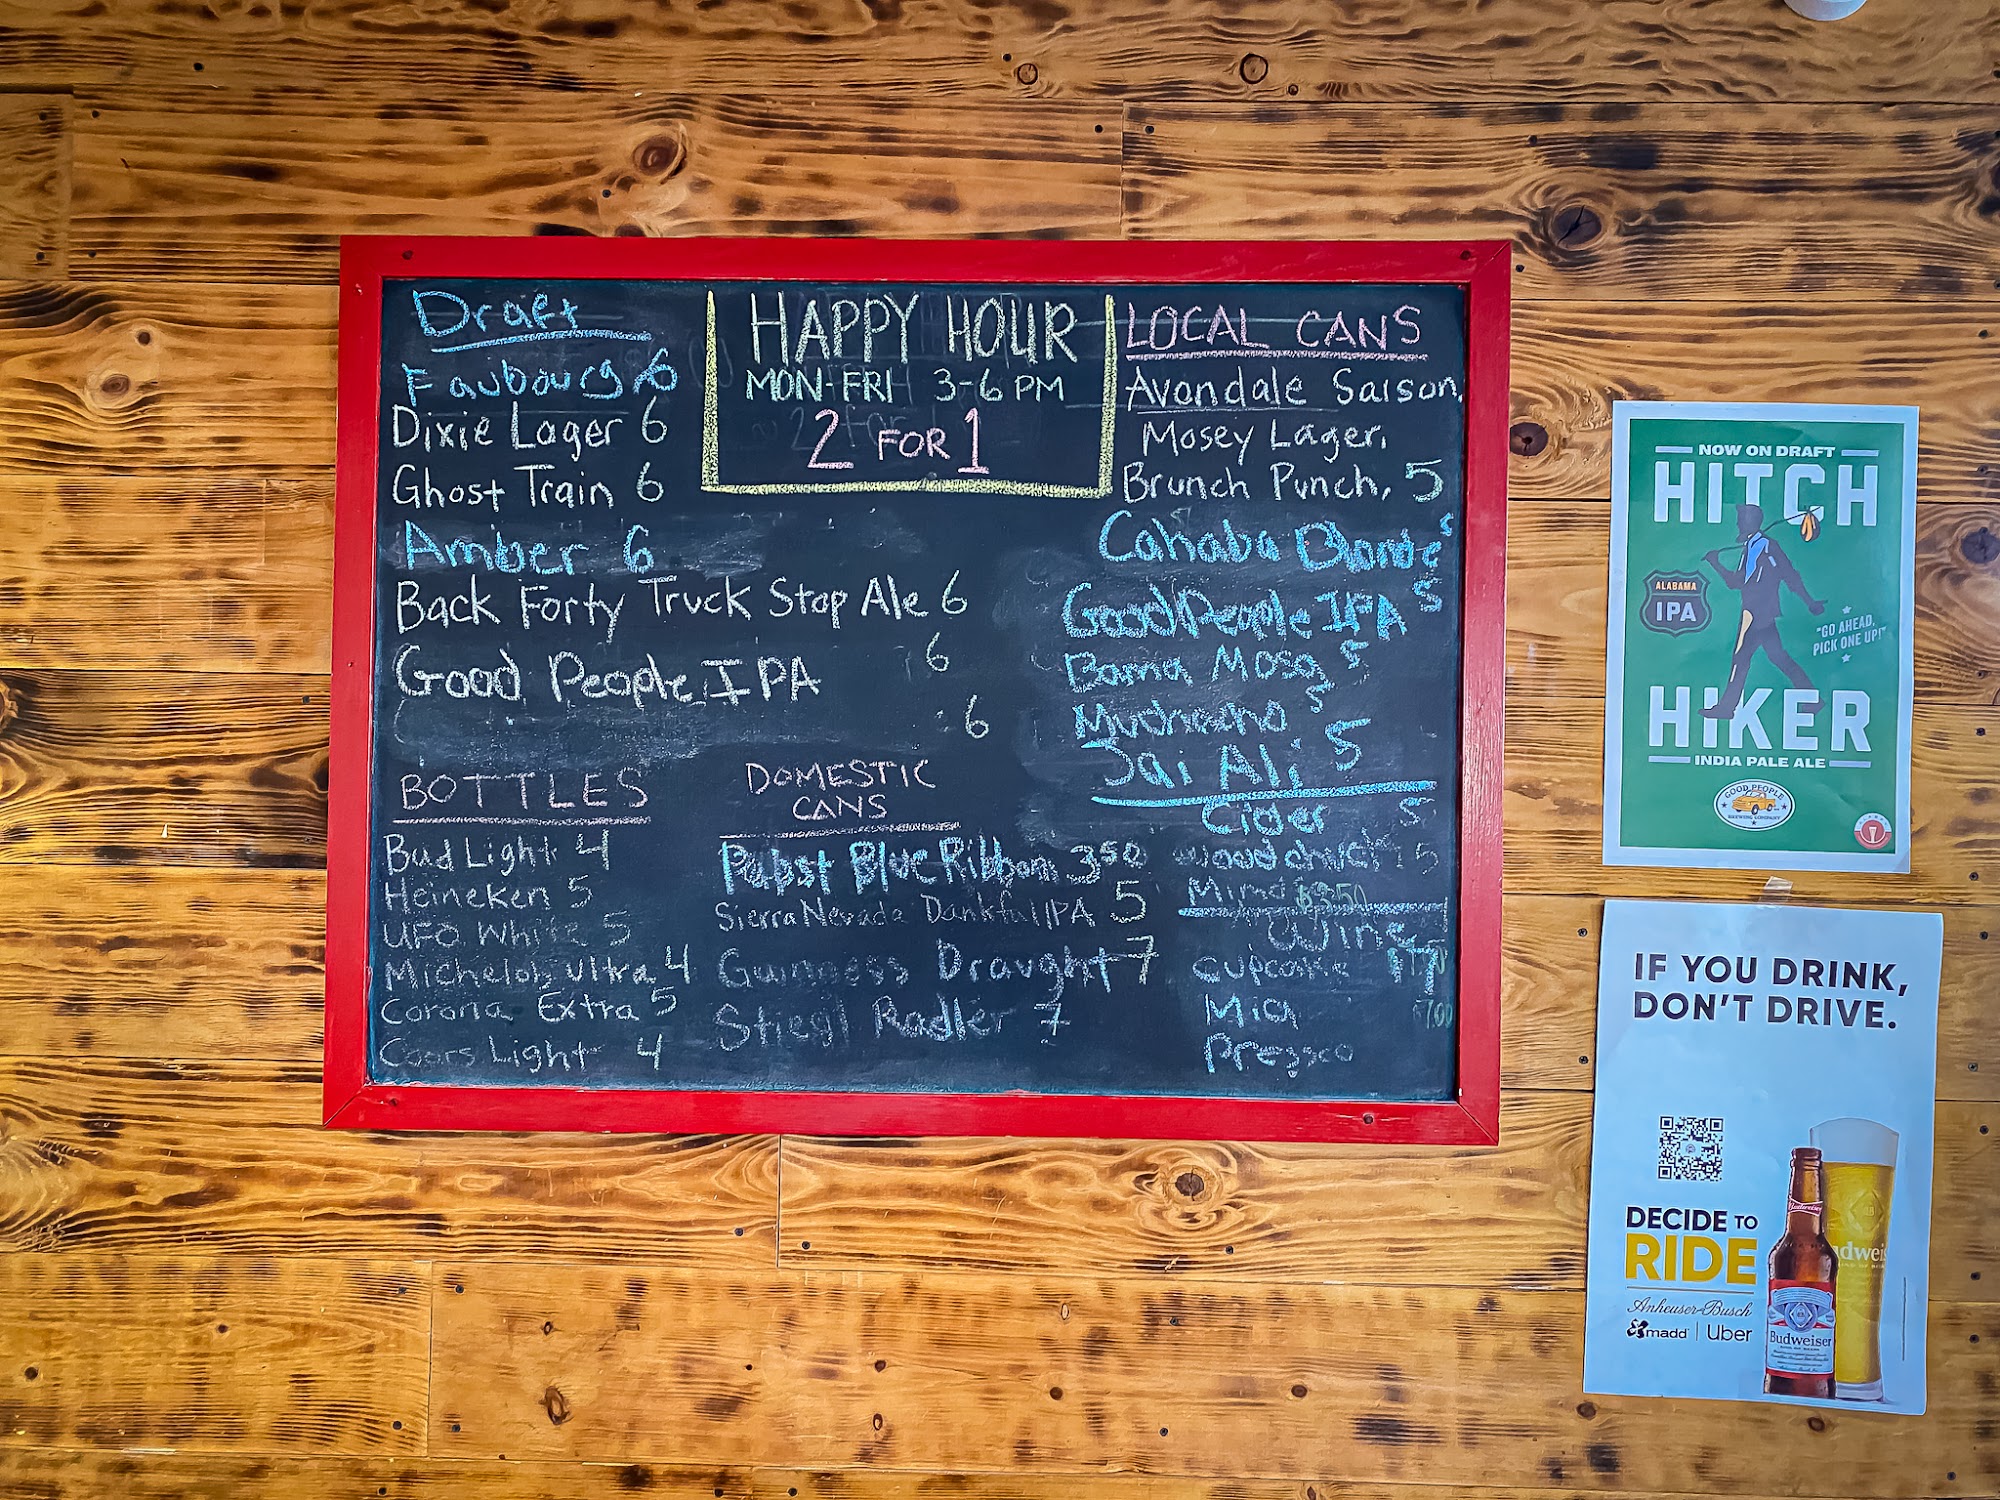 Draft
Faubourg 6
Dixie Lager 6
Ghost Train 6
Amber 6
Back Forty Truck Stop Ale 6
Good People IPA 6
6
HAPPY HOUR
MON-FRI 3-6 PM
2 FOR 1
LOCAL CANS
Avondale Saison,
Mosey Lager,
Brunch Punch, 5
Cahaba Blonde 5
Good People IPA 5
Bama Mosa 5
Muchacho 5
Jai Ali 5
Cider 5
Woodchuck 5
Wine
Cupcake
Mia 7.00
BOTTLES
Bud Light 4
Heineken 5
UFO White 5
Michelob Ultra 4
Corona Extra 5
Coors Light 4
DOMESTIC
CANS
Pabst Blue Ribbon 3 50
Sierra Nevada Dankful IPA 5
Guinness Draught 7
Stiegl Radler 7
NOW ON DRAFT
HITCH
ALABAMA
IPA
"GO AHEAD,
PICK ONE UP!"
HIKER
INDIA PALE ALE
GOOD PEOPLE
BREWING COMPANY
IF YOU DRINK,
DON'T DRIVE.
DECIDE TO
RIDE
Anheuser-Busch
madd | Uber
Budweiser
Budweiser
udweis